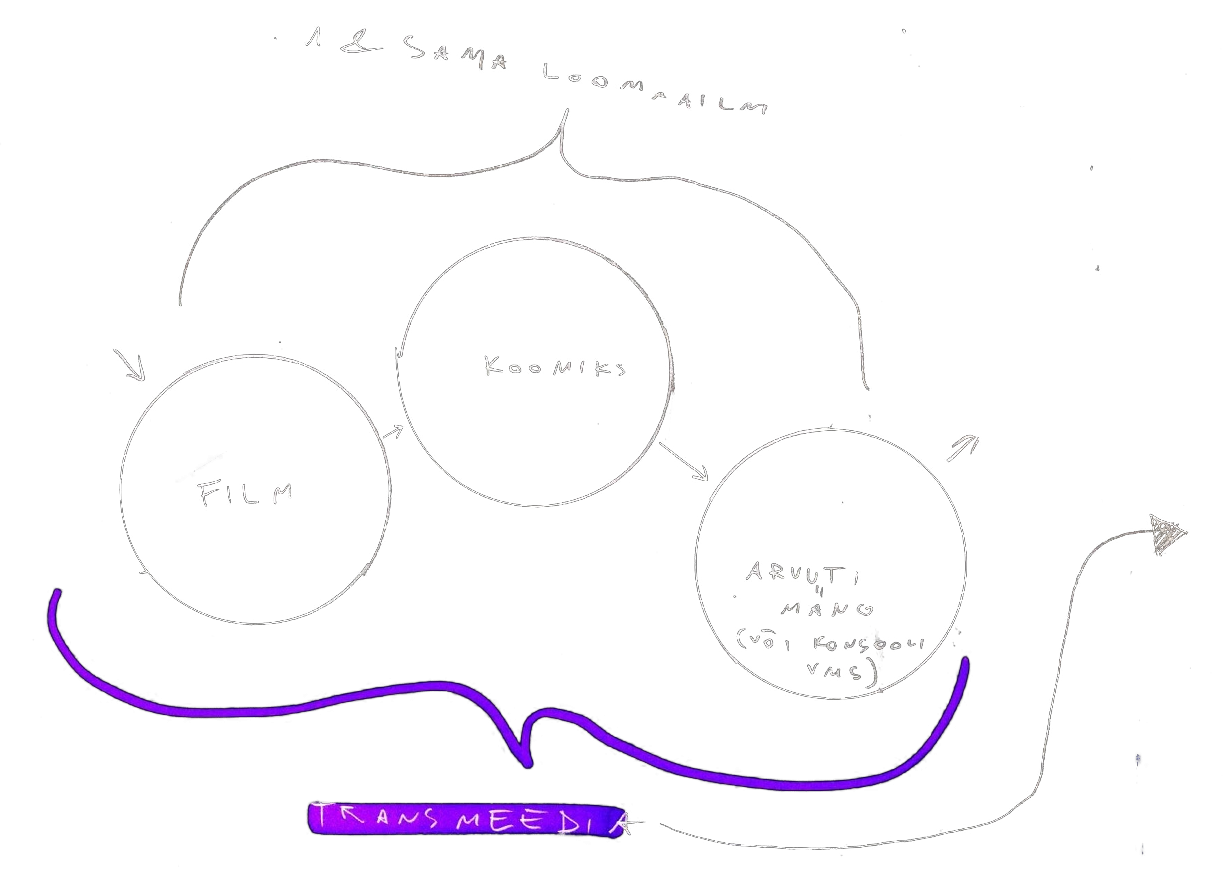 1 & SAMA LOOMAAILM
KOOMIKS
FILM
ARVUTI
MÄNG
(VÕI KONSOOLI
VMS)
TRANSMEEDIA